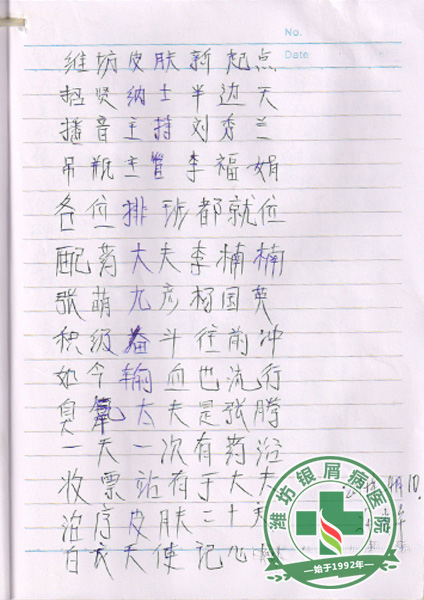 No.
Date
维坊皮肤新起点
招贤纳士半边天
播音主持刘秀兰
吊瓶主管李福娟
各位排班都就位
配药大夫李楠楠
张萌九彦杨国英
积级奋斗往前冲
如今输血也流行
臭氧大夫是张腾
一天一次有药浴
收票站有于大夫
治疗皮肤二十
白衣天使记心
潍坊银屑病医院
始于1992年